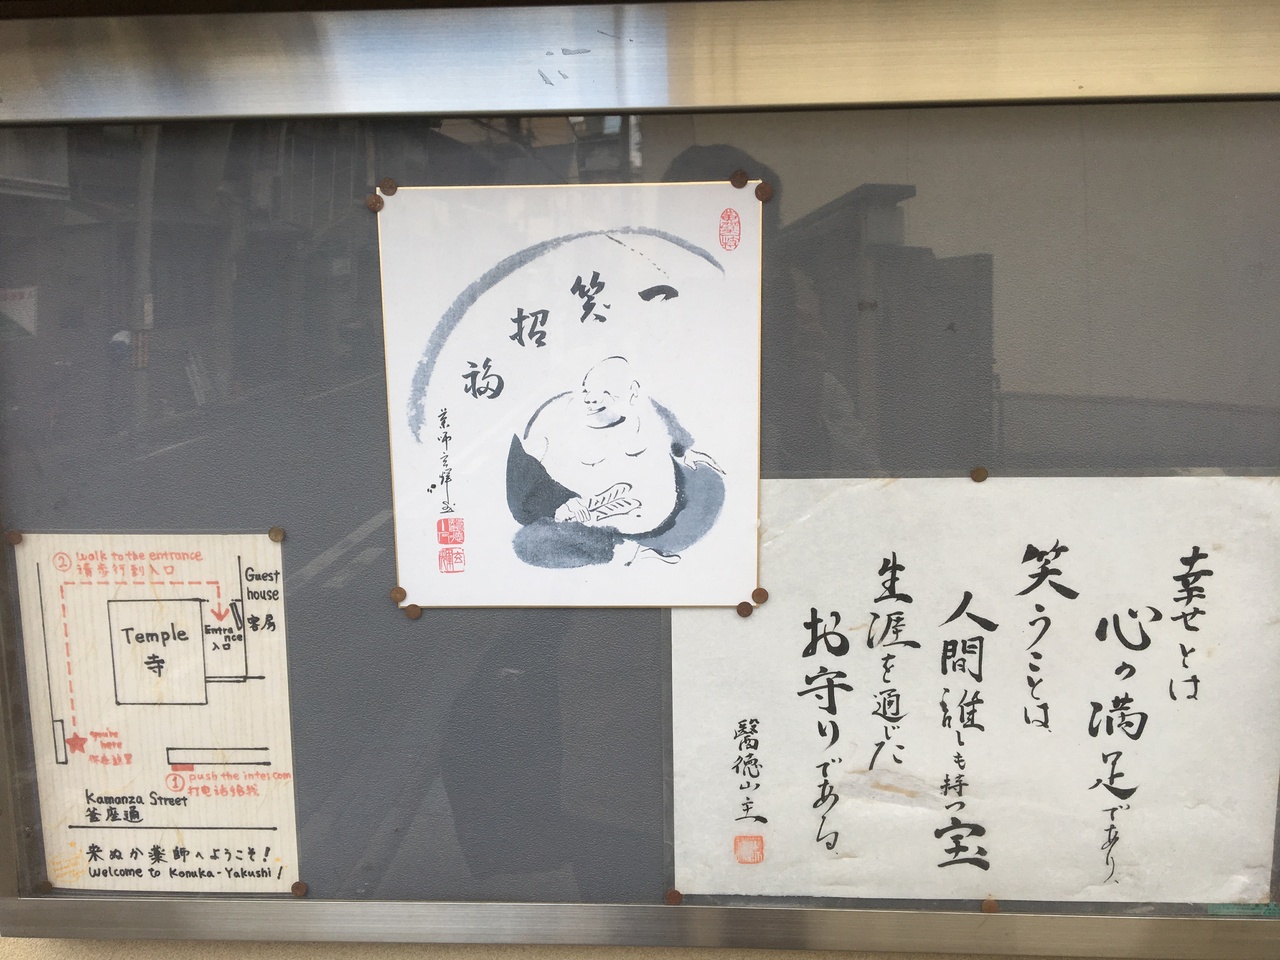 一笑招福
薬師玄輝画
② Walk to the entrance
请步行到入口
Guest
house
客房
Temple
寺
Entra
nce
入口
you're
here
你在這里
① push the intercom
打电话给我
Kamanza Street
釜座通
来ぬか薬師へようこそ!
Welcome to Konuka-Yakushi!
幸せとは
心の満足であり、
笑うことは
人間誰しも持つ宝
生涯を通じた
お守りである
醫徳山主